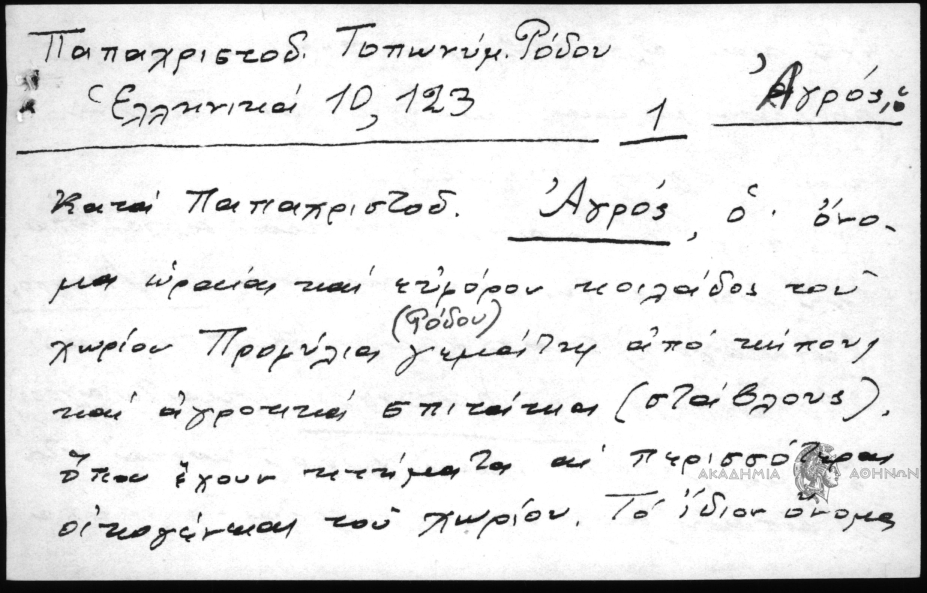 Παπαχριστοδ. Τοπωνύμ. Ρόδου
Ἑλληνικά 10, 123
1
Ἀγρός, ὁ
Κατά Παπαχριστοδ. Ἀγρός, ὁ· ὄνο-
μα ὡραίας καί εὐφόρου κοιλάδος τοῦ
χωρίου Προμύλια (Ρόδου) γεμάτη ἀπό κήπους
καί ἀγροτικά σπιτάκια (στάβλους),
ὅπου ἔχουν κτήματα αἱ περισσότεραι
οἰκογένειαι τοῦ χωρίου. Τό ἴδιον ὄνομα
ΑΚΑΔΗΜΙΑ ΑΘΗΝΩΝ